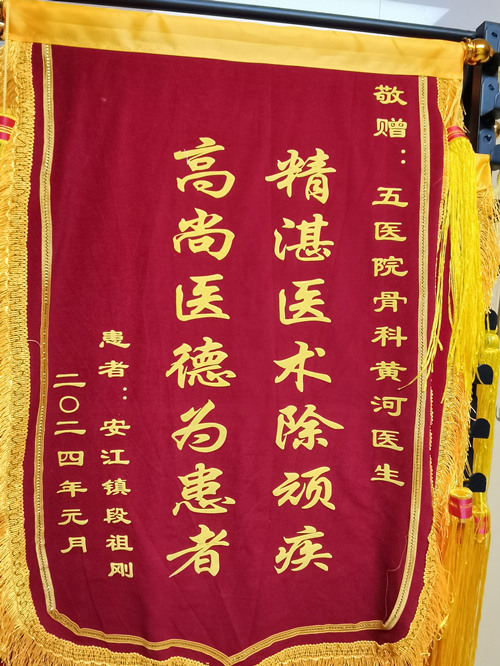 敬赠：五医院骨科黄河医生
精湛医术除顽疾
高尚医德为患者
患者：安江镇段祖刚
二〇二四年元月